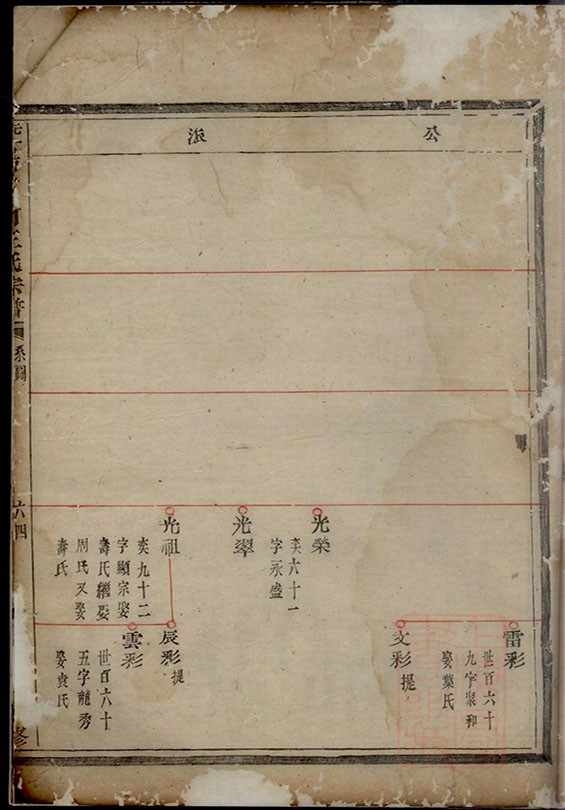 公派
雷彩
世百六十
九字聚和
娶葉氏
文彩
提
光榮
奕六十一
字永盛
光翠
光祖
奕九十二
字顯宗娶
壽氏繼娶
周氏又娶
壽氏
辰彩
提
雲彩
世百六十
五字龍秀
娶袁氏
王氏宗譜
系圖
六四